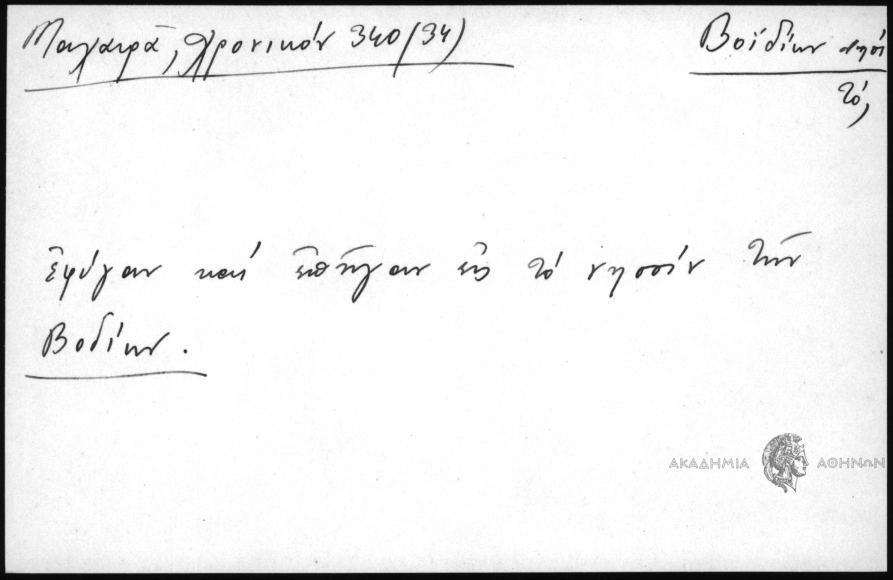 Μαχαιρά, Χρονικόν 340 (34)
Βοϊδίων νησί
τό,
ἐφύγαν καί ἐπῆγαν εἰς τό νησσίν τῶν
Βοδίων.
ΑΚΑΔΗΜΙΑ ΑΘΗΝΩΝ